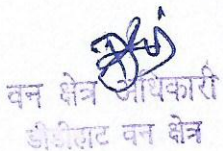 वन क्षेत्र अधिकारी
डीडीहाट वन क्षेत्र